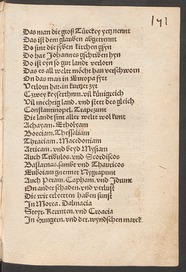 151
Das man die groß Türckey yetz nennt
Das ist dem glauben abgetrennt
Do sint die syben kirchen gsyn
Do hat Johannes geschriben hyn
Do ist eyn so gut landt verlorn
Das es all welt möcht han verschworn
On das man in Europa syt
Verloren hat in kurtzer zyt
Zwey keyserthum, vil künigrich
Vil mechtig land, und stett des glich
Constantinopel, Trapezunt
Die landt sint aller welt wol kunt
Achayam, Etholyam
Boeciam, Thessaliam
Thraciam, Macedoniam
Atticam, und beyd Mysiam
Auch Tribulos, und Scordiscos
Bastarnas, samt und Thauricos
Euboiam genennt Nygrapunt
Auch Peram, Capham, und Idrunt
On ander schaden, und verlust
Die wir erlitten haben sunst
In Morea, Dalmacia
Styr, Kernten, und Croacia
In Hungern, und der wyndschen marck